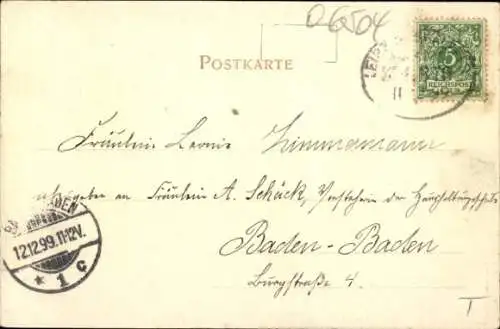 06504
POSTKARTE
LEIPZ
5
REICHSPOST
11
Fräulein Leonie Zimmermann
abzugeben an Fräulein A. Schück, Vorsteherin der Haushaltungsschule
Baden-Baden
Burgstraße 4.
BADEN
12.12.99.11-12V.
* 1 c
T